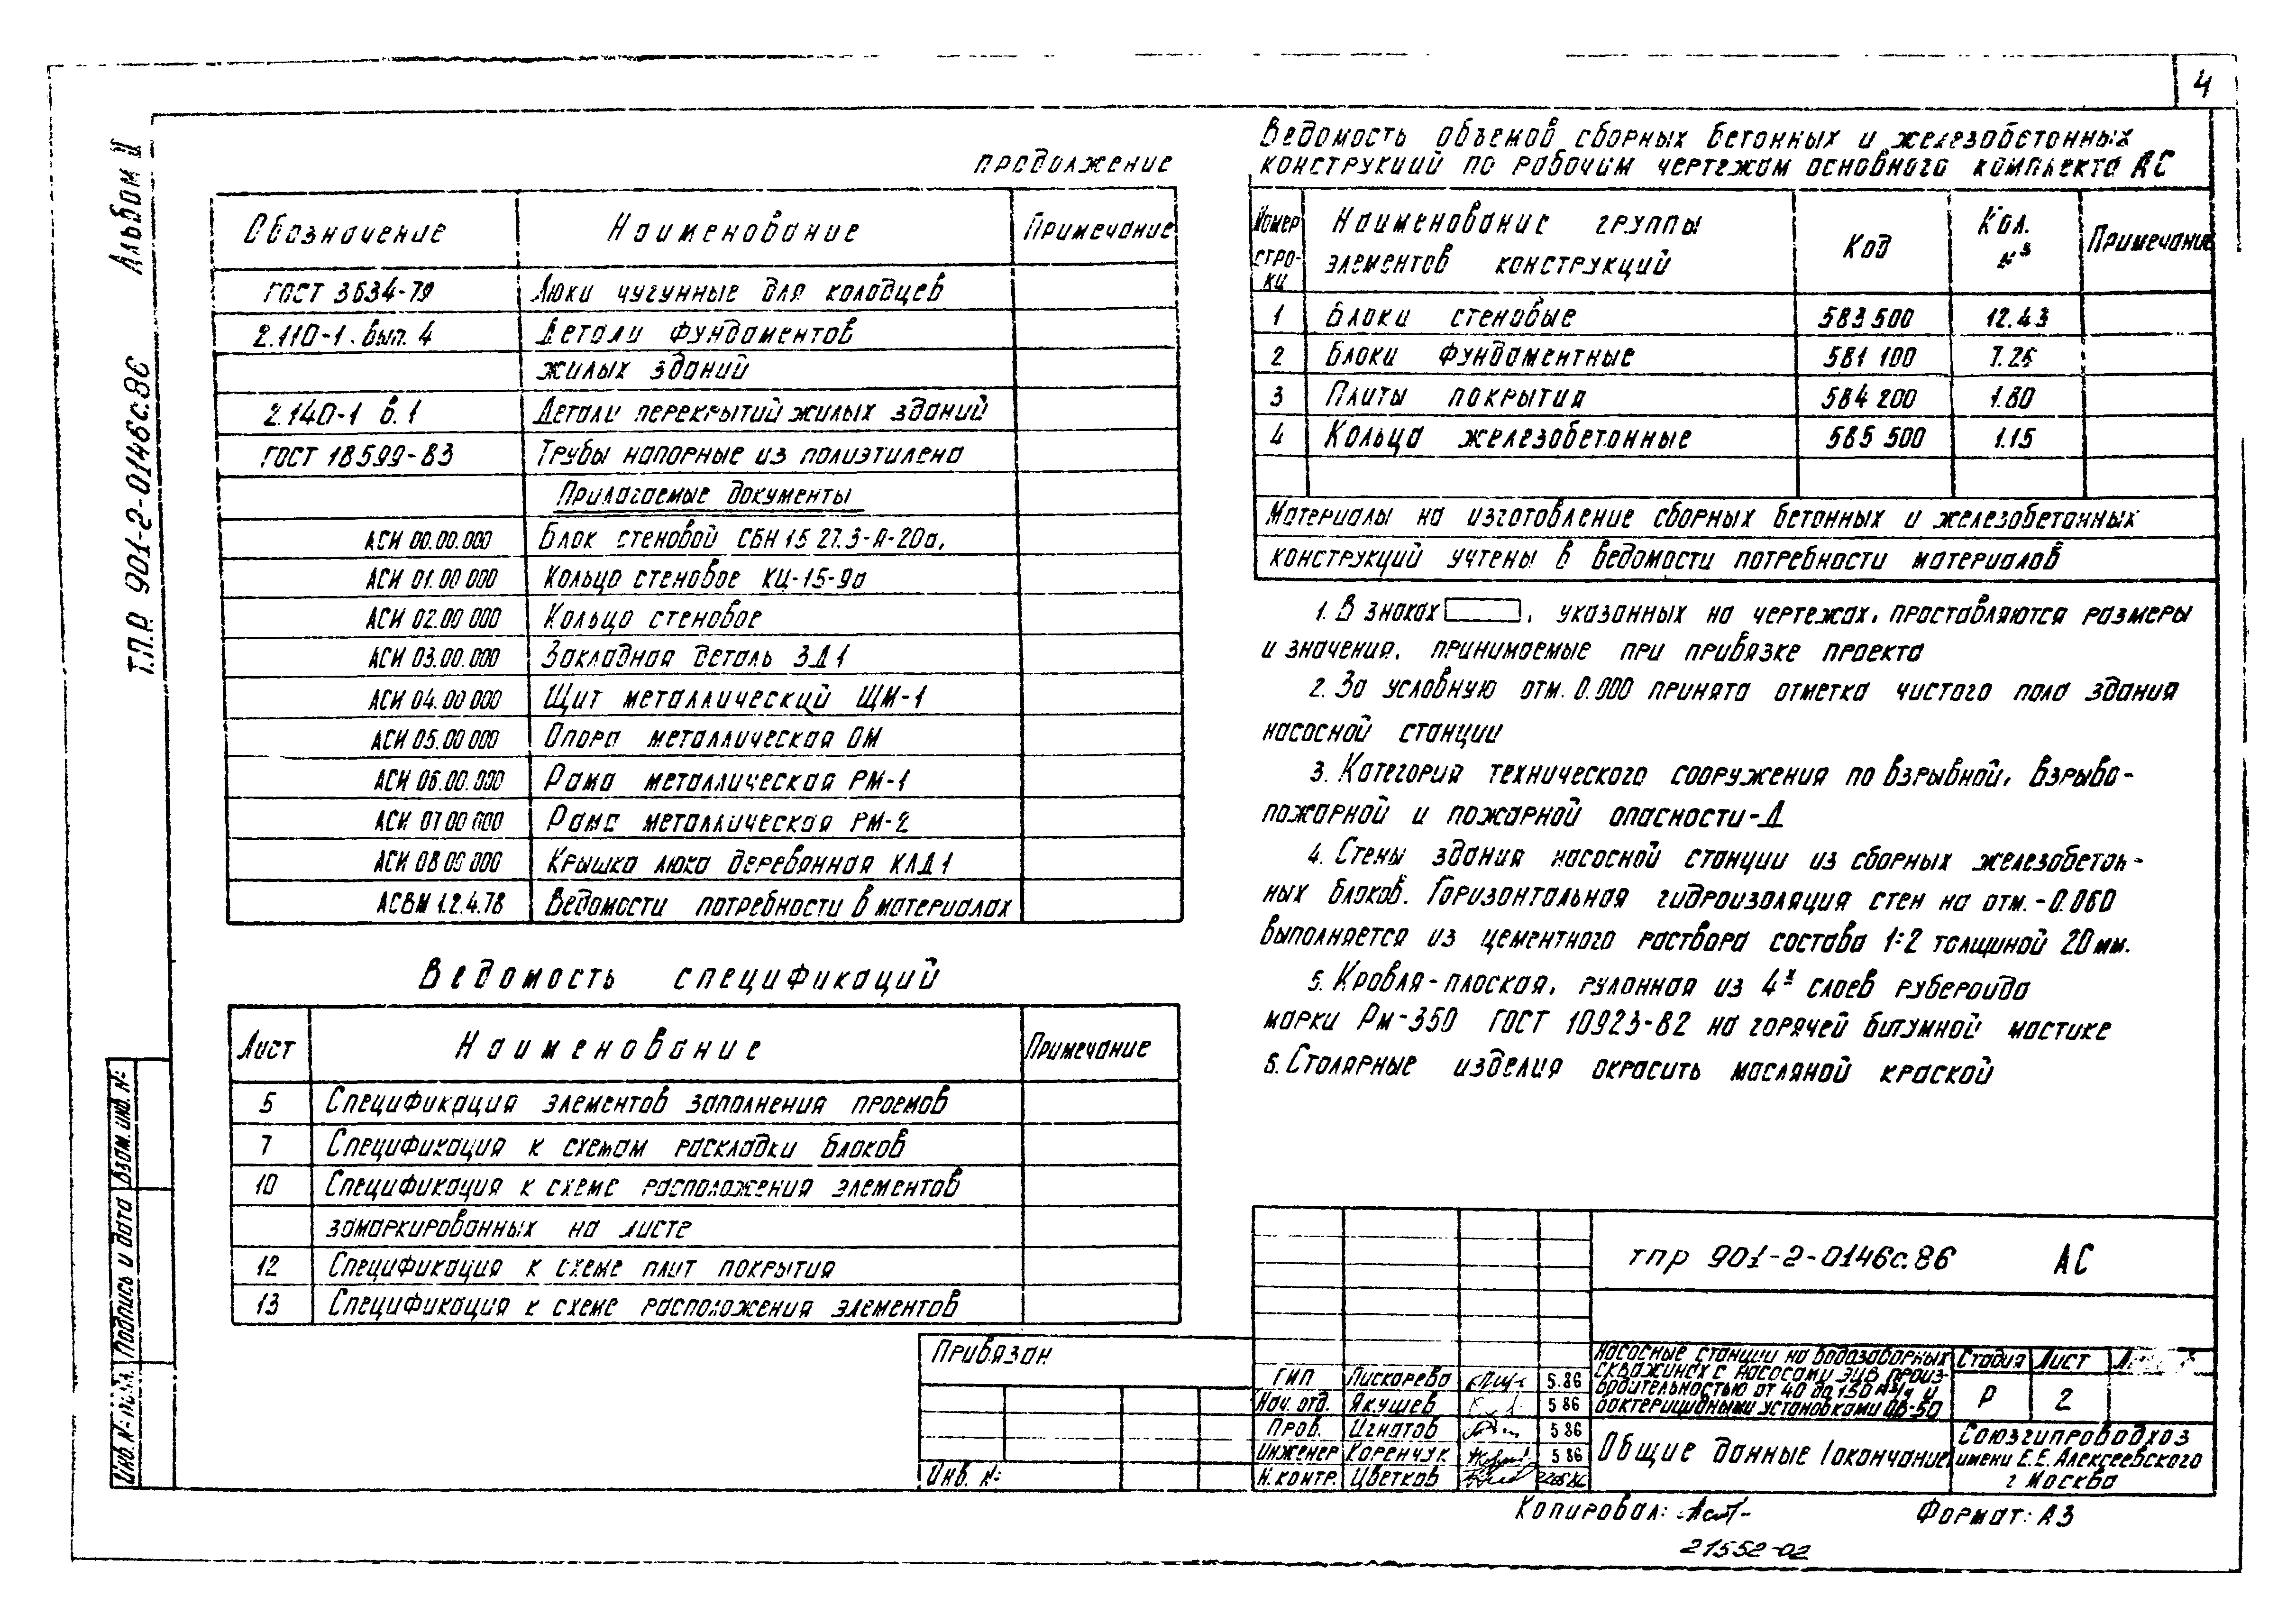 4
Альбом II
Т.П.Р. 901-2-0146с.86
продолжение
Обозначение Наименование Примечание
ГОСТ 3634-79 Люки чугунные для колодцев
2.110-1. вып. 4 Детали фундаментов
жилых зданий
2.140-1 в.1 Детали перекрытий жилых зданий
ГОСТ 18599-83 Трубы напорные из полиэтилена
Прилагаемые документы
АСИ 00.00.000 Блок стеновой СБН 15 27.3-Я-20а,
АСИ 01.00 000 Кольцо стеновое КЦ-15-9а
АСИ 02.00 000 Кольцо стеновое
АСИ 03.00.000 Закладная деталь ЗД1
АСИ 04.00 000 Щит металлический ЩМ-1
АСИ 05.00 000 Опора металлическая ОМ
АСИ 06.00.000 Рама металлическая РМ-1
АСИ 07 00 000 Рама металлическая РМ-2
АСИ 08 00 000 Крышка люка деревянная КЛД1
АСВМ 1.2.4.78 Ведомости потребности в материалах
Ведомость спецификаций
Лист Наименование Примечание
5 Спецификация элементов заполнения проемов
7 Спецификация к схемам раскладки блоков
10 Спецификация к схеме расположения элементов
замаркированных на листе
12 Спецификация к схеме плит покрытия
13 Спецификация к схеме расположения элементов
Ведомость объемов сборных бетонных и железобетонных
конструкций по рабочим чертежам основного комплекта АС
Номер строки Наименование группы элементов конструкций Код Кол. м³ Примечание
1 Блоки стеновые 583 500 12.43
2 Блоки фундаментные 581 100
3 Плиты покрытия 584 200 1.80
4 Кольца железобетонные 585 500 1.15
Материалы на изготовление сборных бетонных и железобетонных
конструкций учтены в ведомости потребности материалов
1. В знаках , указанных на чертежах, проставляются размеры
и значения, принимаемые при привязке проекта
2. За условную отм. 0.000 принята отметка чистого пола здания
насосной станции
3. Категория технического сооружения по взрывной, взрыво-
пожарной и пожарной опасности-Д
4. Стены здания насосной станции из сборных железобетон-
ных блоков. Горизонтальная гидроизоляция стен на отм. -0.060
выполняется из цементного раствора состава 1:2 толщиной 20мм.
5. Кровля-плоская, рулонная из 4х слоев рубероида
марки Рм-350 ГОСТ 10923-82 на горячей битумной мастике
6. Столярные изделия окрасить масляной краской
тпр 901-2-0146с.86 АС
Насосные станции на водозаборных
скважинах с насосами ЭЦВ произ-
водительностью от 40 до 150 м³/ч и
бактерицидными установками ОВ-50
Стадия Лист
Р 2
Общие данные (окончание)
Союзгипроводхоз
имени Е.Е. Алексеевского
г Москва
ГИП Пискарева 5.86
Нач. отд. Якушев 5 86
Пров. Игнатов 5 86
Инженер Коренчук 5 86
Н.контр. Цветков
Привязан
Инв. №
Взам. инв. №
Подпись и дата
Инв. № подл.
Копировал:
Формат: А3
21552-02